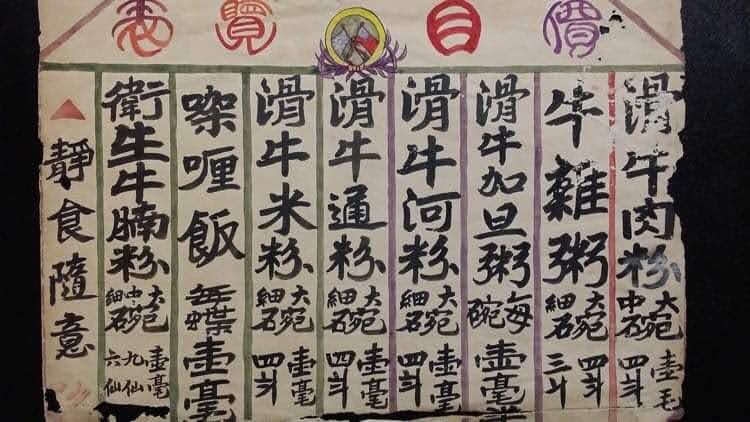 價目覽表
滑牛肉粉 大碗 中碗 壹毛 四斗
牛雜粥 大碗 細碗 四斗 三斗
滑牛加旦粥 每碗 壹毫
滑牛河粉 大碗 細碗 壹毫 四斗
滑牛通粉 大碗 細碗 壹毫 四斗
滑牛米粉 大碗 細碗 壹毫 四斗
㗎喱飯 每碟 壹毫
衛生牛腩粉 大碗 中碗 細碗 壹毫 九仙 六仙
靜食隨意